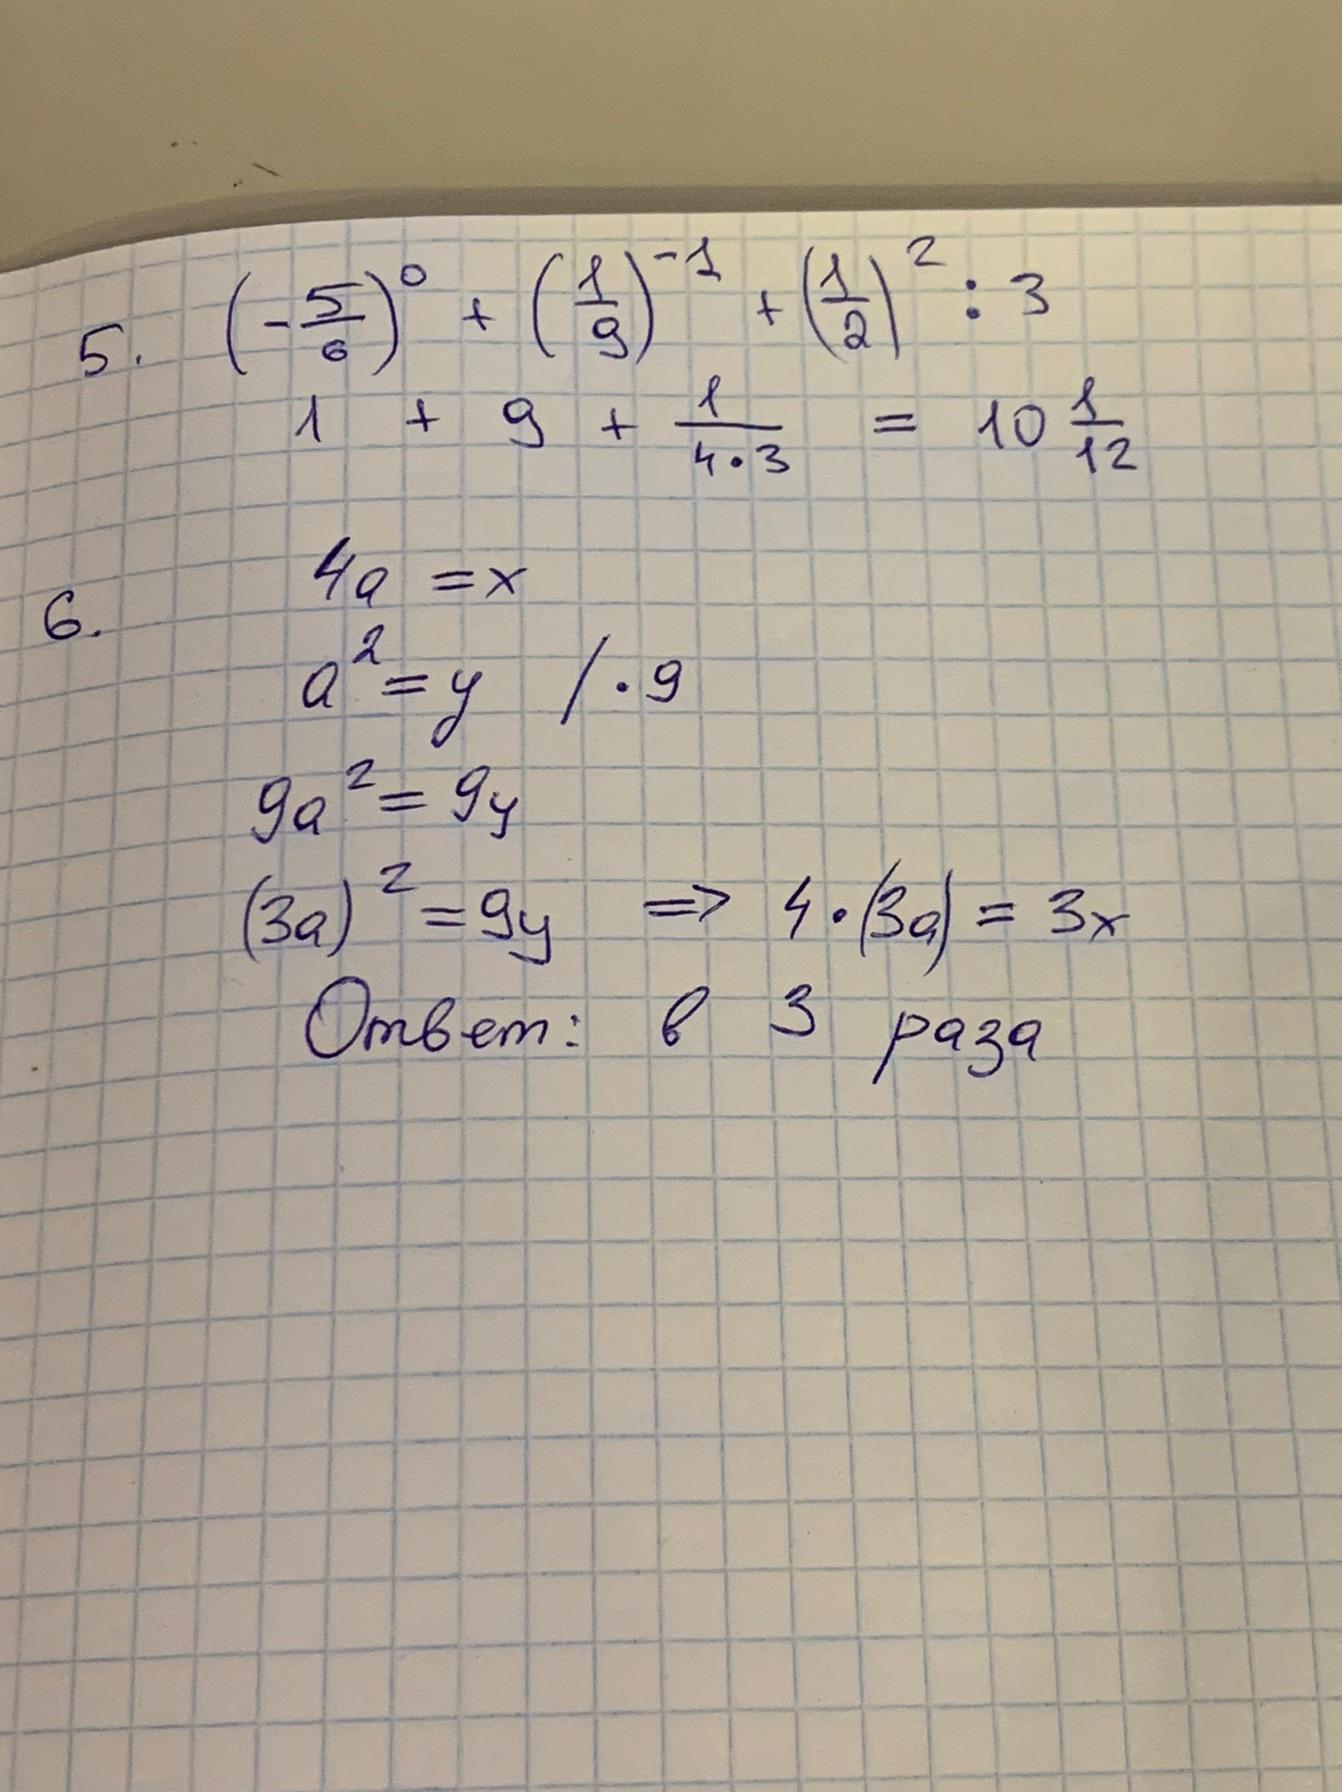 5. (-5/6)⁰ + (1/9)⁻¹ + (1/2)² : 3
1 + 9 + 1/(4·3) = 10 1/12
6. 4a = x
a² = y /·9
9a² = 9y
(3a)² = 9y => 4·(3a) = 3x
Ответ: в 3 раза